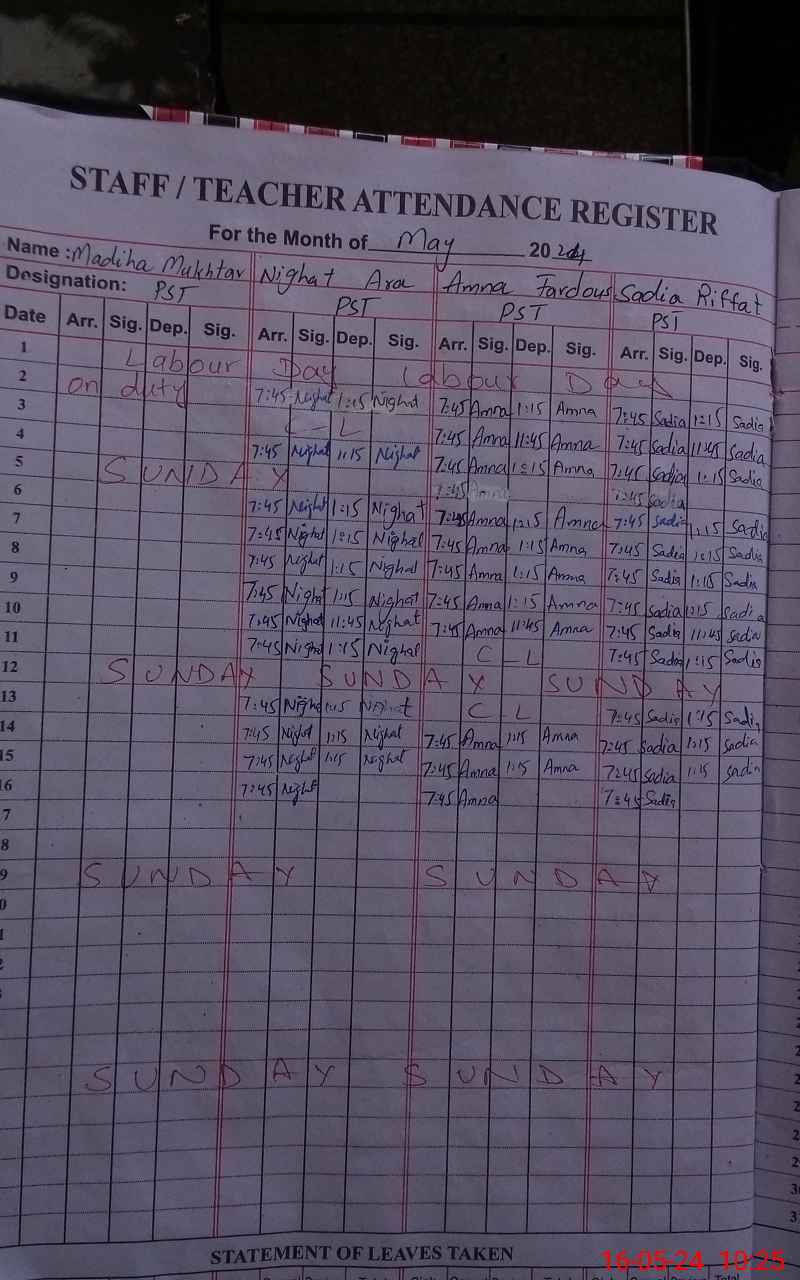 STAFF / TEACHER ATTENDANCE REGISTER
For the Month of May 2024
Name : Madiha Mukhtar Nighat Ara Amna Fardous Sadia Riffat
Designation: PST PST PST PST
Date Arr. Sig. Dep. Sig. Arr. Sig. Dep. Sig. Arr. Sig. Dep. Sig. Arr. Sig. Dep. Sig.
1 Labour Day Labour Day
2 on duty 7:45 Nighat 1:15 Nighat 7:45 Amna 1:15 Amna 7:45 Sadia 1:15 Sadia
3 C-L 7:45 Amna 11:45 Amna 7:45 Sadia 11:45 Sadia
4 7:45 Nighat 1:15 Nighat 7:45 Amna 1:15 Amna 7:45 Sadia 1:15 Sadia
5 SUNDAY 7:45 Amna 7:45 Sadia
6 7:45 Nighat 1:15 Nighat 7:45 Amna 1:15 Amna 7:45 Sadia 1:15 Sadia
7 7:45 Nighat 1:15 Nighat 7:45 Amna 1:15 Amna 7:45 Sadia 1:15 Sadia
8 7:45 Nighat 1:15 Nighat 7:45 Amna 1:15 Amna 7:45 Sadia 1:15 Sadia
9 7:45 Nighat 1:15 Nighat 7:45 Amna 1:15 Amna 7:45 Sadia 1:15 Sadia
10 7:45 Nighat 11:45 Nighat 7:45 Amna 11:45 Amna 7:45 Sadia 11:45 Sadia
11 7:45 Nighat 1:15 Nighat C-L 7:45 Sadia 1:15 Sadia
12 SUNDAY SUNDAY SUNDAY
13 7:45 Nighat 1:15 Nighat C L 7:45 Sadia 1:15 Sadia
14 7:45 Nighat 1:15 Nighat 7:45 Amna 1:15 Amna 7:45 Sadia 1:15 Sadia
15 7:45 Nighat 1:15 Nighat 7:45 Amna 1:15 Amna 7:45 Sadia 1:15 Sadia
16 7:45 Nighat 7:45 Amna 7:45 Sadia
7
8
9 SUNDAY SUNDAY
0
1
2
SUNDAY SUNDAY
STATEMENT OF LEAVES TAKEN
16-05-24 10:25